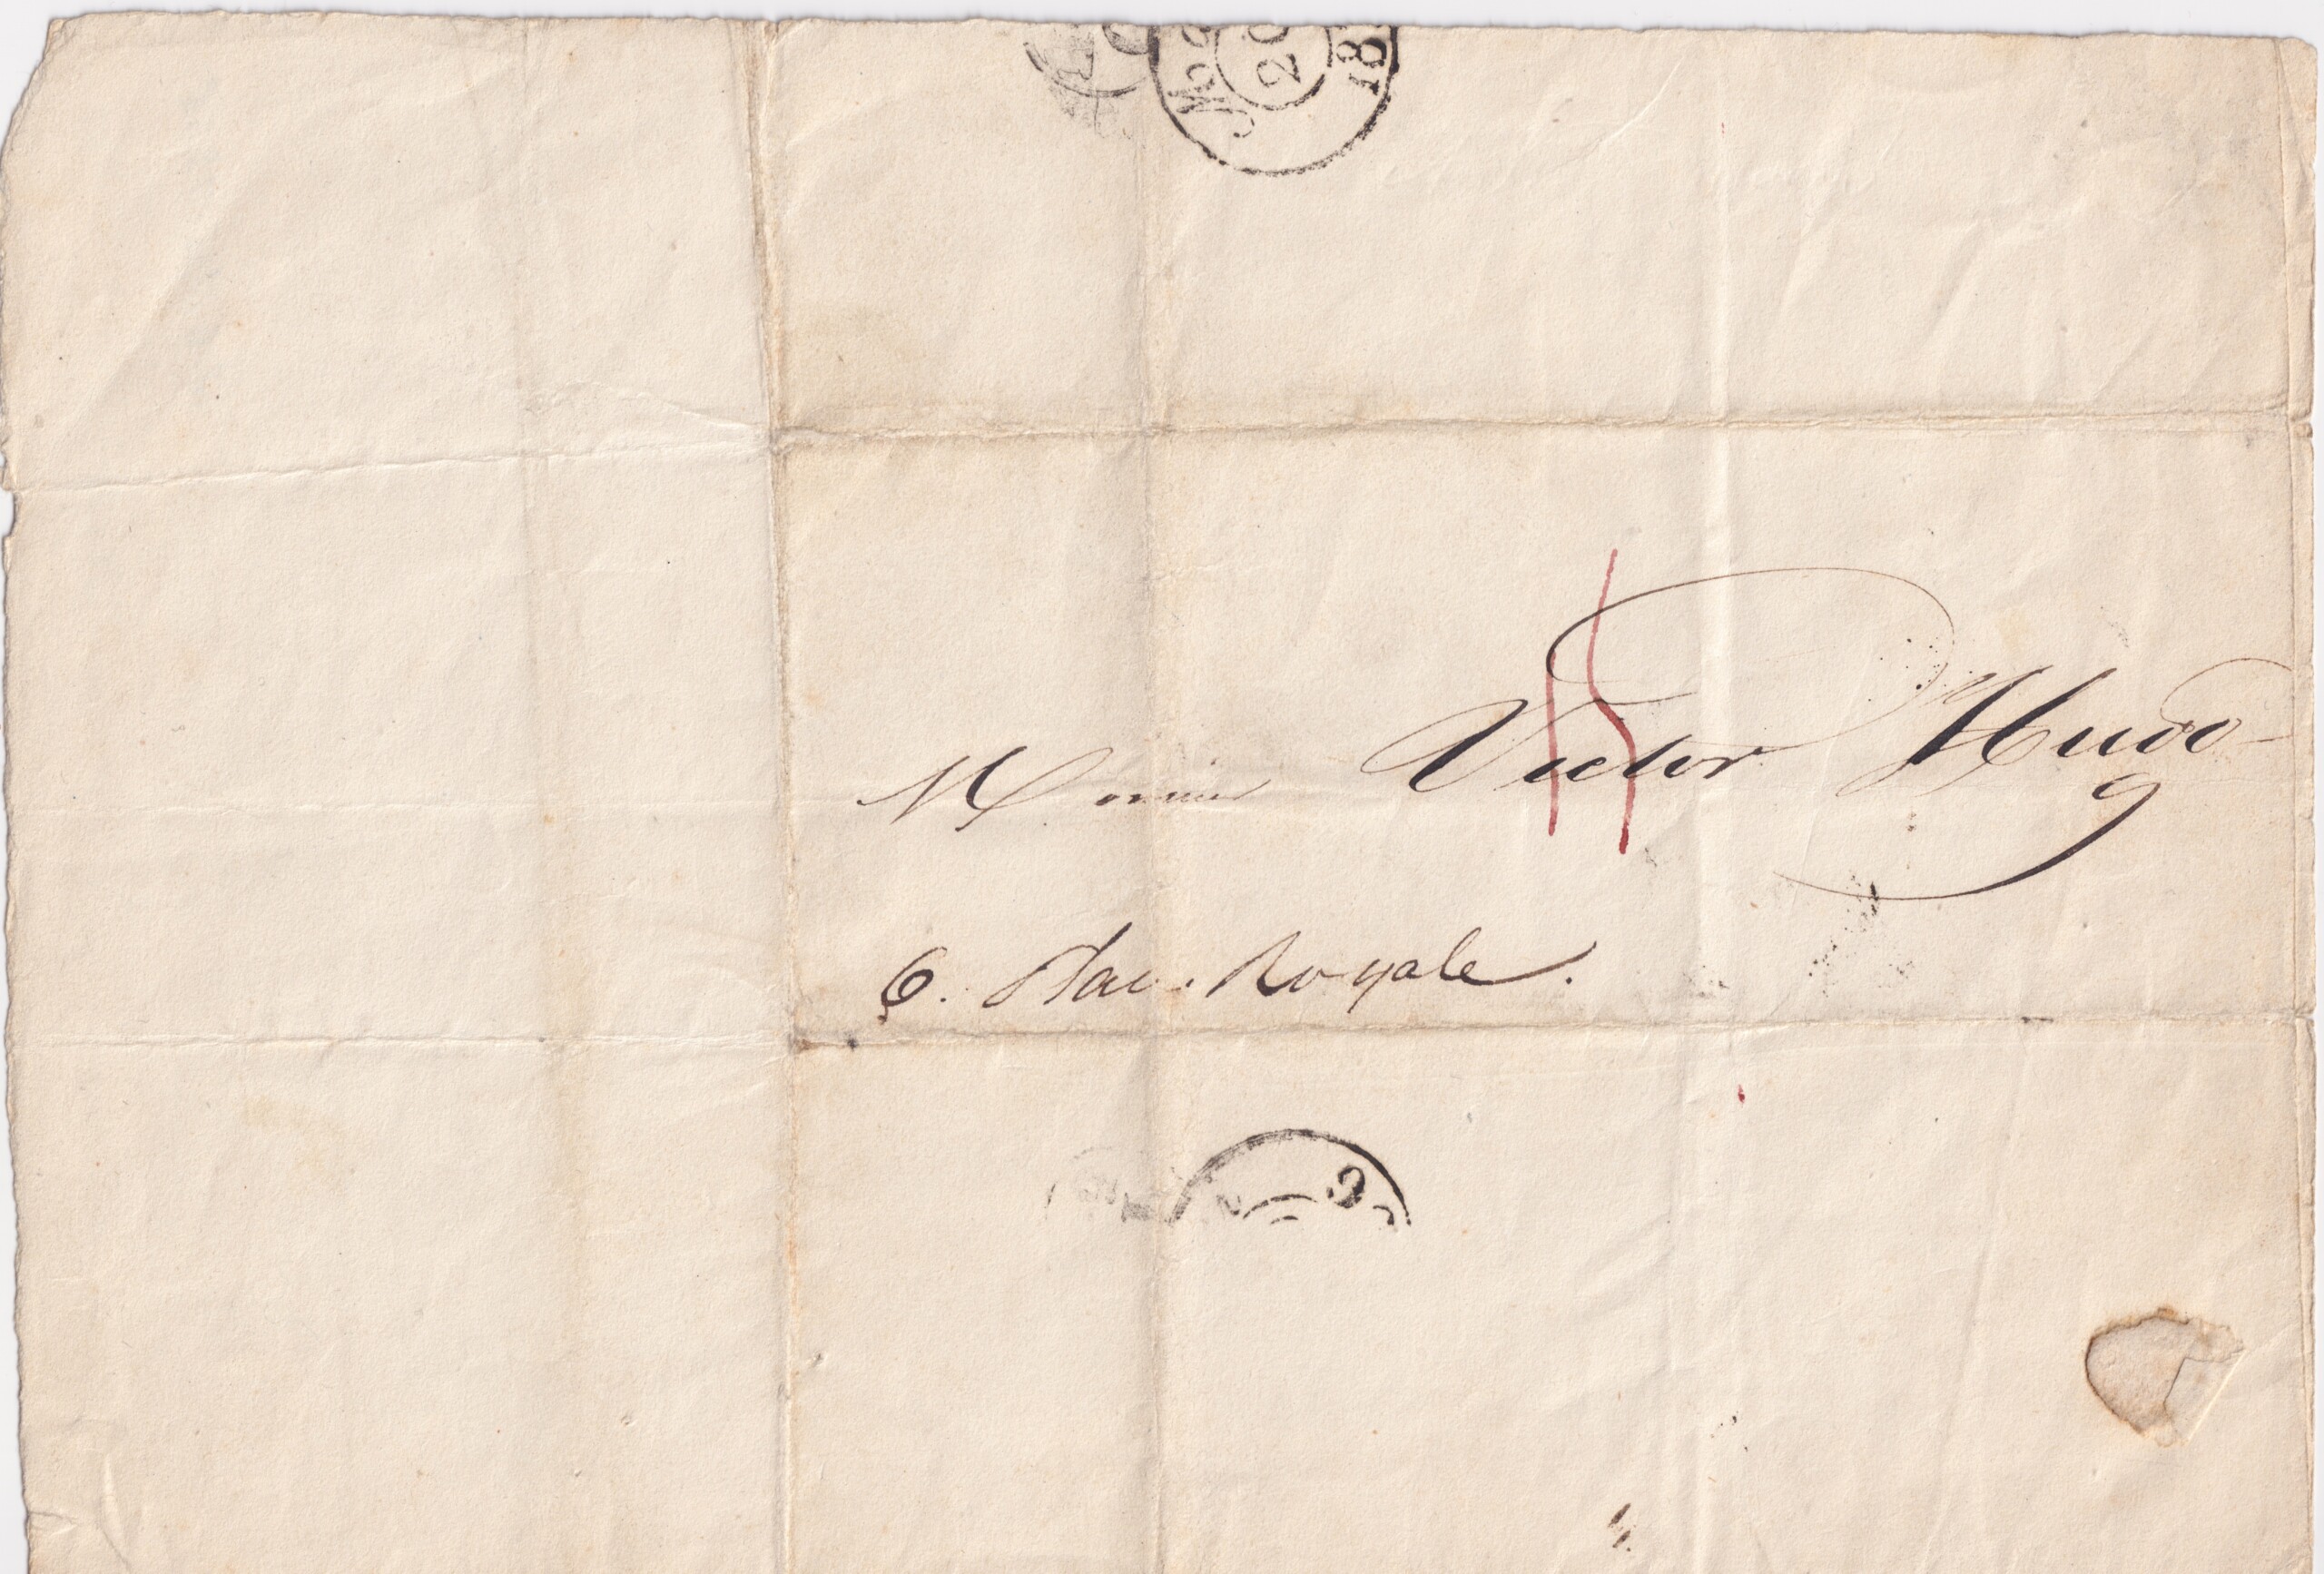 20
18
Monsieur Victor Hugo
6. Place Royale.